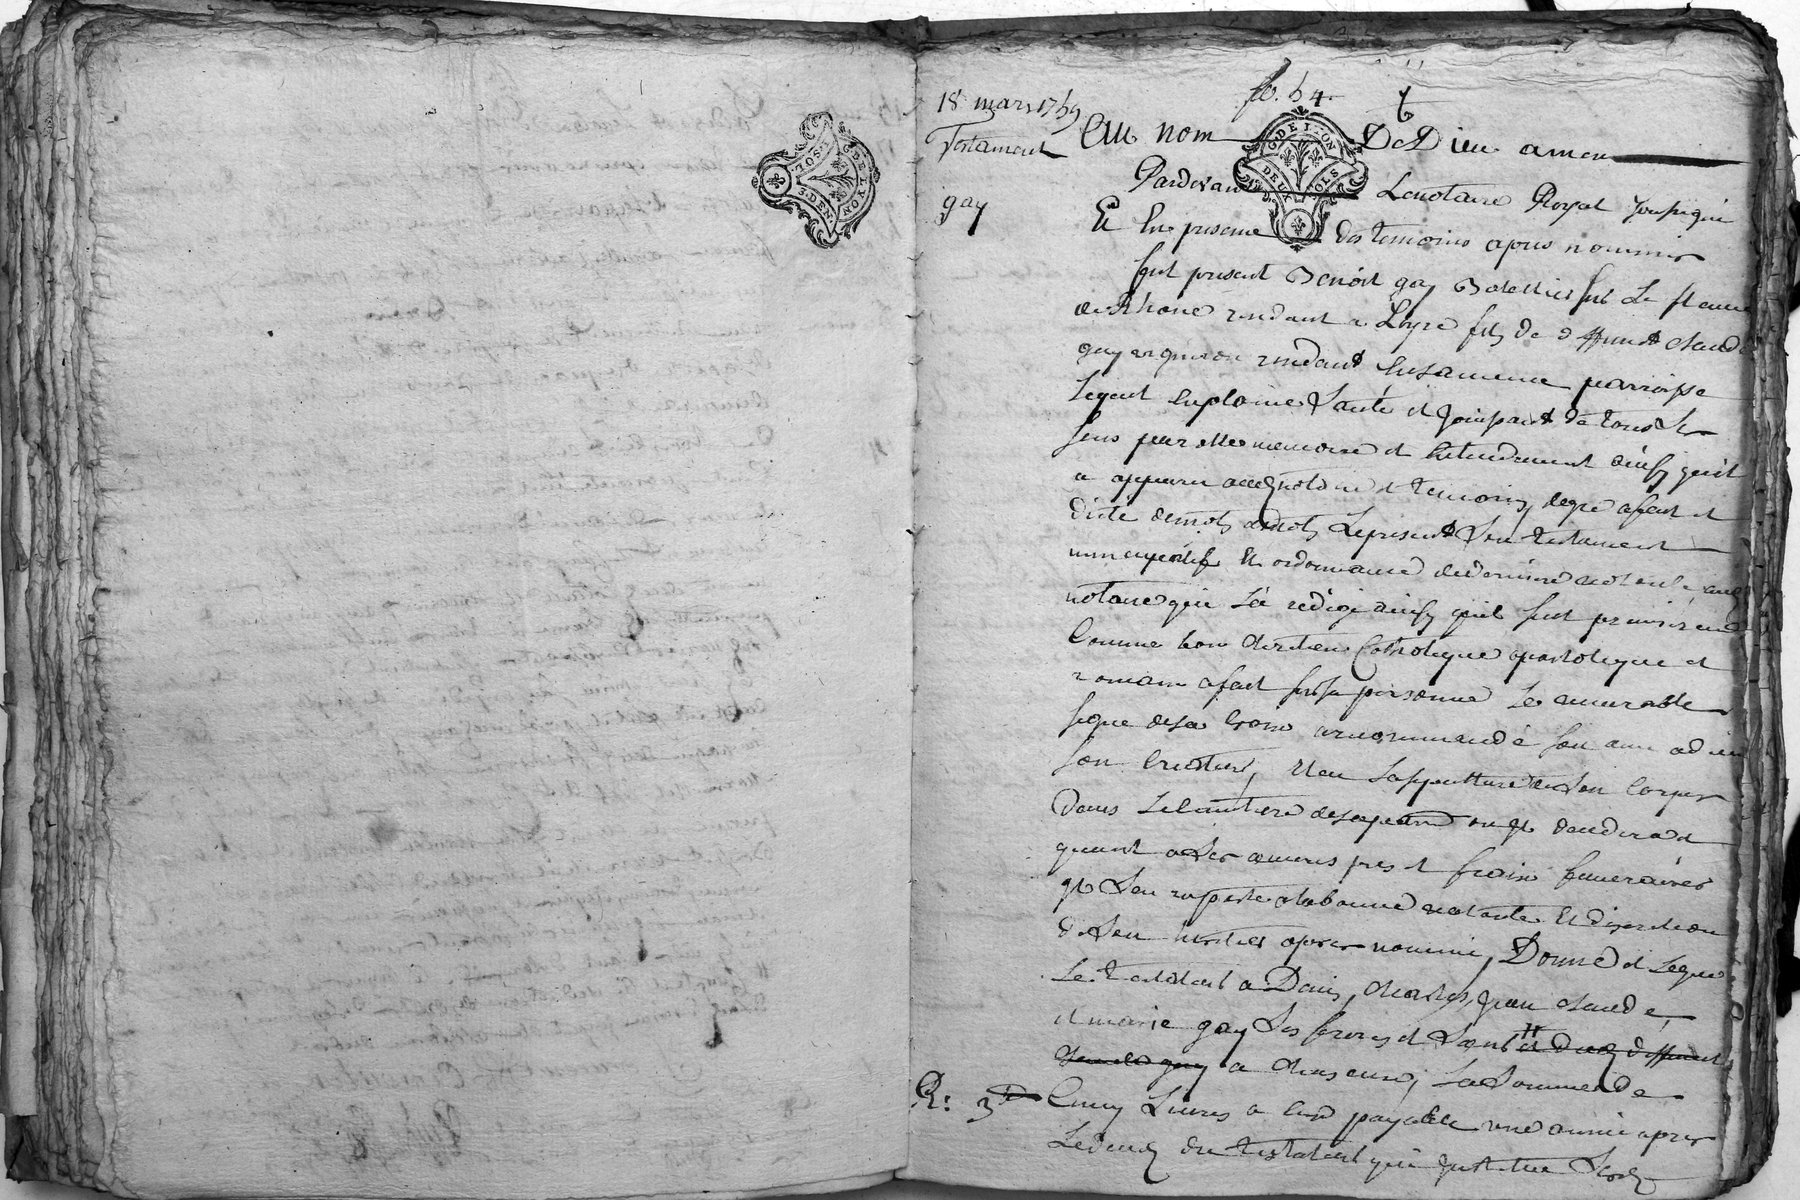 G. DE LYON
1. SOL. 3. DEN.
fo. 54.
18 mars 1759
Testament
gay
G. DE LYON
DEUX SOLS
Au nom De Dieu amen
Pardevant Le notaire Royal soussigné
Et En presence des temoins apres nommés
fut present Benoit gay Batellier sur Le fleuve
de Rhone residant a Loyre fils de deffunt claude
gay vigneron residant paroisse
Lequel En plaine Santé et jouissant de tous Ses
sens parolle memoire et Entendement ainsy quil
a apparu aud. notaire et temoins, de gré a fait et
dicté de mot a mot Le present Son testament
nuncupatif Et ordonnance de derniere volonté aud.
notaire qui La redigé ainsy quil suit premierement
Comme bon chretien Catholique apostolique et
romain a fait sur sa personne Le venerable
signe de la Croix a recommandé son ame a dieu
son Createur, Elu La sepulture de Son Corps
Dans Le cimetiere de la paroisse ou il decedera et
quant a Ses œuvres pies et fraix funeraires
il S'en rapporte a la bonne volonté Et discretion
de Son heritier apres nommé, Donne et Legue
Le testateur a Denis, charles, Jean claude,
et marie gay Ses freres et Sœurs et dud. deffunt
claude gay a chacun, La Somme de
R: 3# Cinq Livres a Eux payable une année apres
Le deces du testateur qui institue